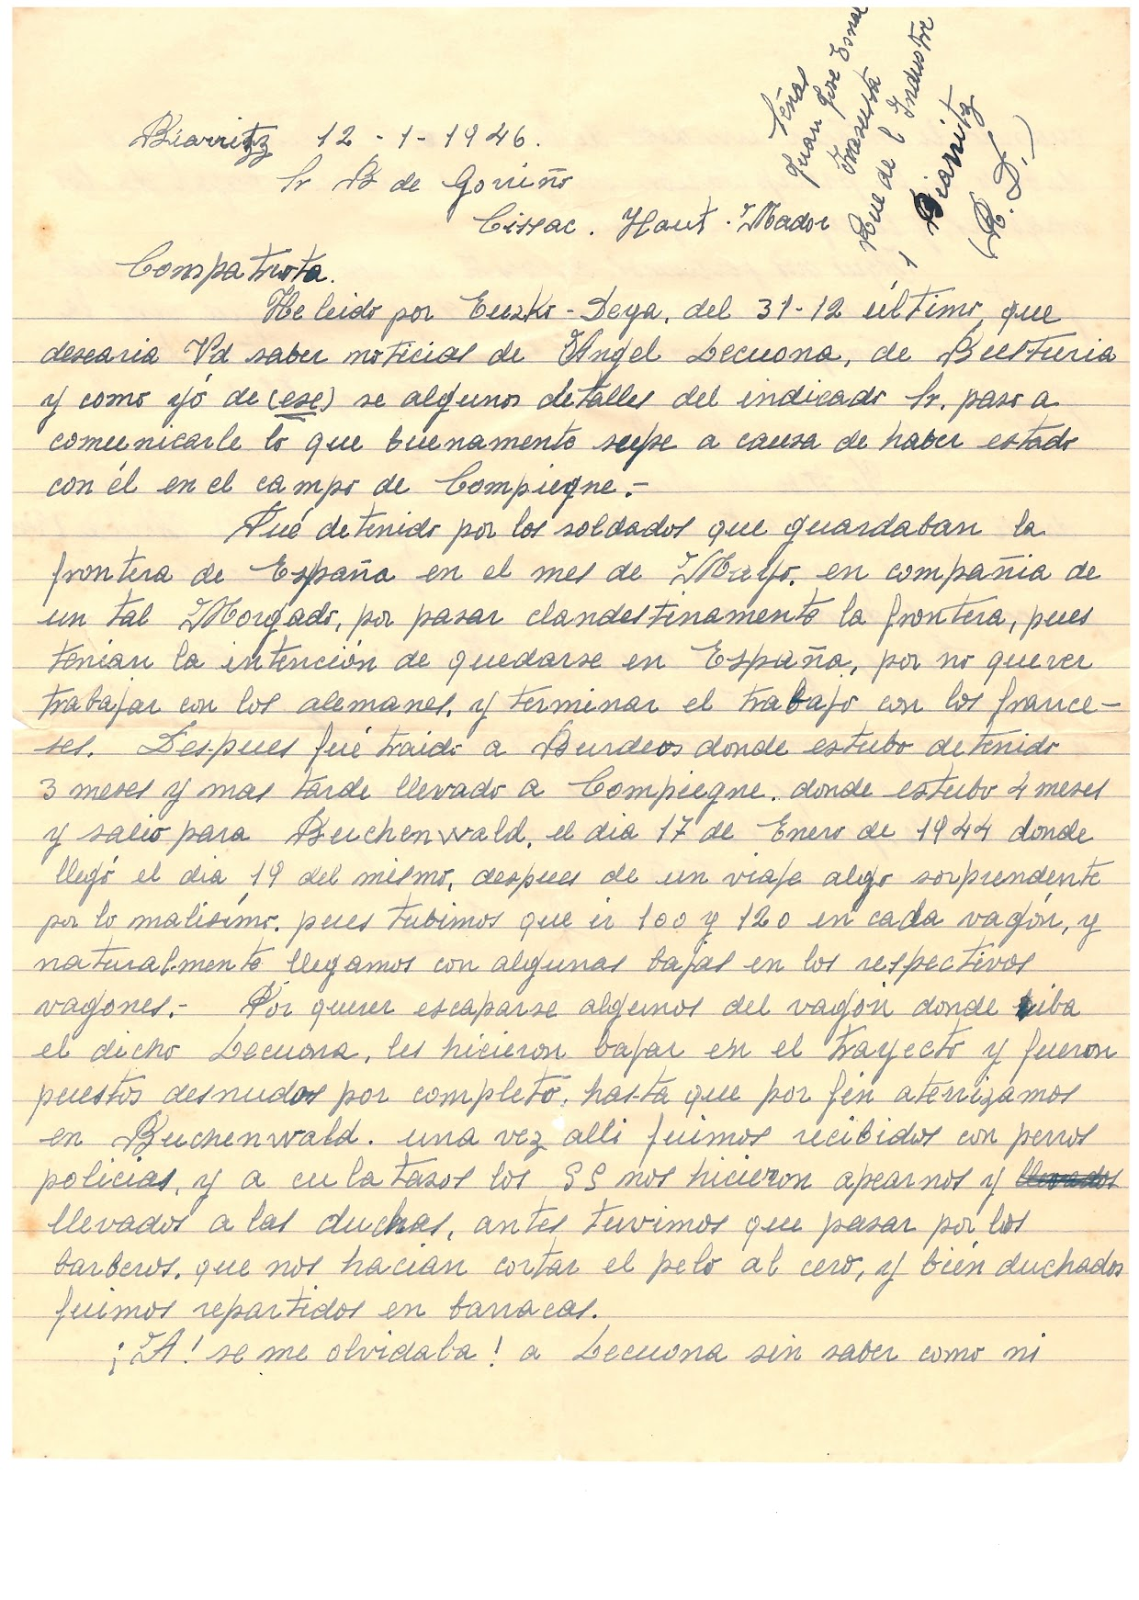 Señas
Juan José Esnal
Rue de l Industrie
1 Biarritz
(R. D.)
Biarritz 12-1-1946.
Sr B de Gorriño
Cissac. Haut-Mador
Compatriota.
He leido por Euzko-Deya, del 31-12 último, que
desearia Vd saber noticias de Angel Lecuona, de Busturia
y como yó de (ese) se algunos detalles del indicado Sr. paso a
comunicarle lo que buenamente supe a causa de haber estado
con él en el campo de Compiegne.-
Fué detenido por los soldados que guardaban la
frontera de España en el mes de en compañia de
un tal Morgado, por pasar clandestinamente la frontera, pues
tenian la intención de quedarse en España, por no querer
trabajar con los alemanes, y terminar el trabajo con los france-
ses. Despues fué traido a Burdeos donde estubo detenido
3 meses y mas tarde llevado a Compiegne. donde estubo 4 meses
y salio para Buchenwald, el dia 17 de Enero de 1944 donde
llegó el dia 19 del mismo, despues de un viaje algo sorprendente
por lo malisimo. pues tubimos que ir 100 y 120 en cada vagón, y
naturalmente llegamos con algunas bajas en los respectivos
vagones.- Por querer escaparse algunos del vagón donde iba
el dicho Lecuona, les hicieron bajar en el trayecto y fueron
puestos desnudos por completo, hasta que por fin aterrizamos
en Buchenwald. una vez alli fuimos recibidos con perros
policias, y a culatazos los SS nos hicieron apearnos y llevados
llevados a las duchas, antes tuvimos que pasar por los
barberos, que nos hacian cortar el pelo al cero, y bién duchados
fuimos repartidos en barracas.
¡A! se me olvidaba! a Lecuona sin saber como ni